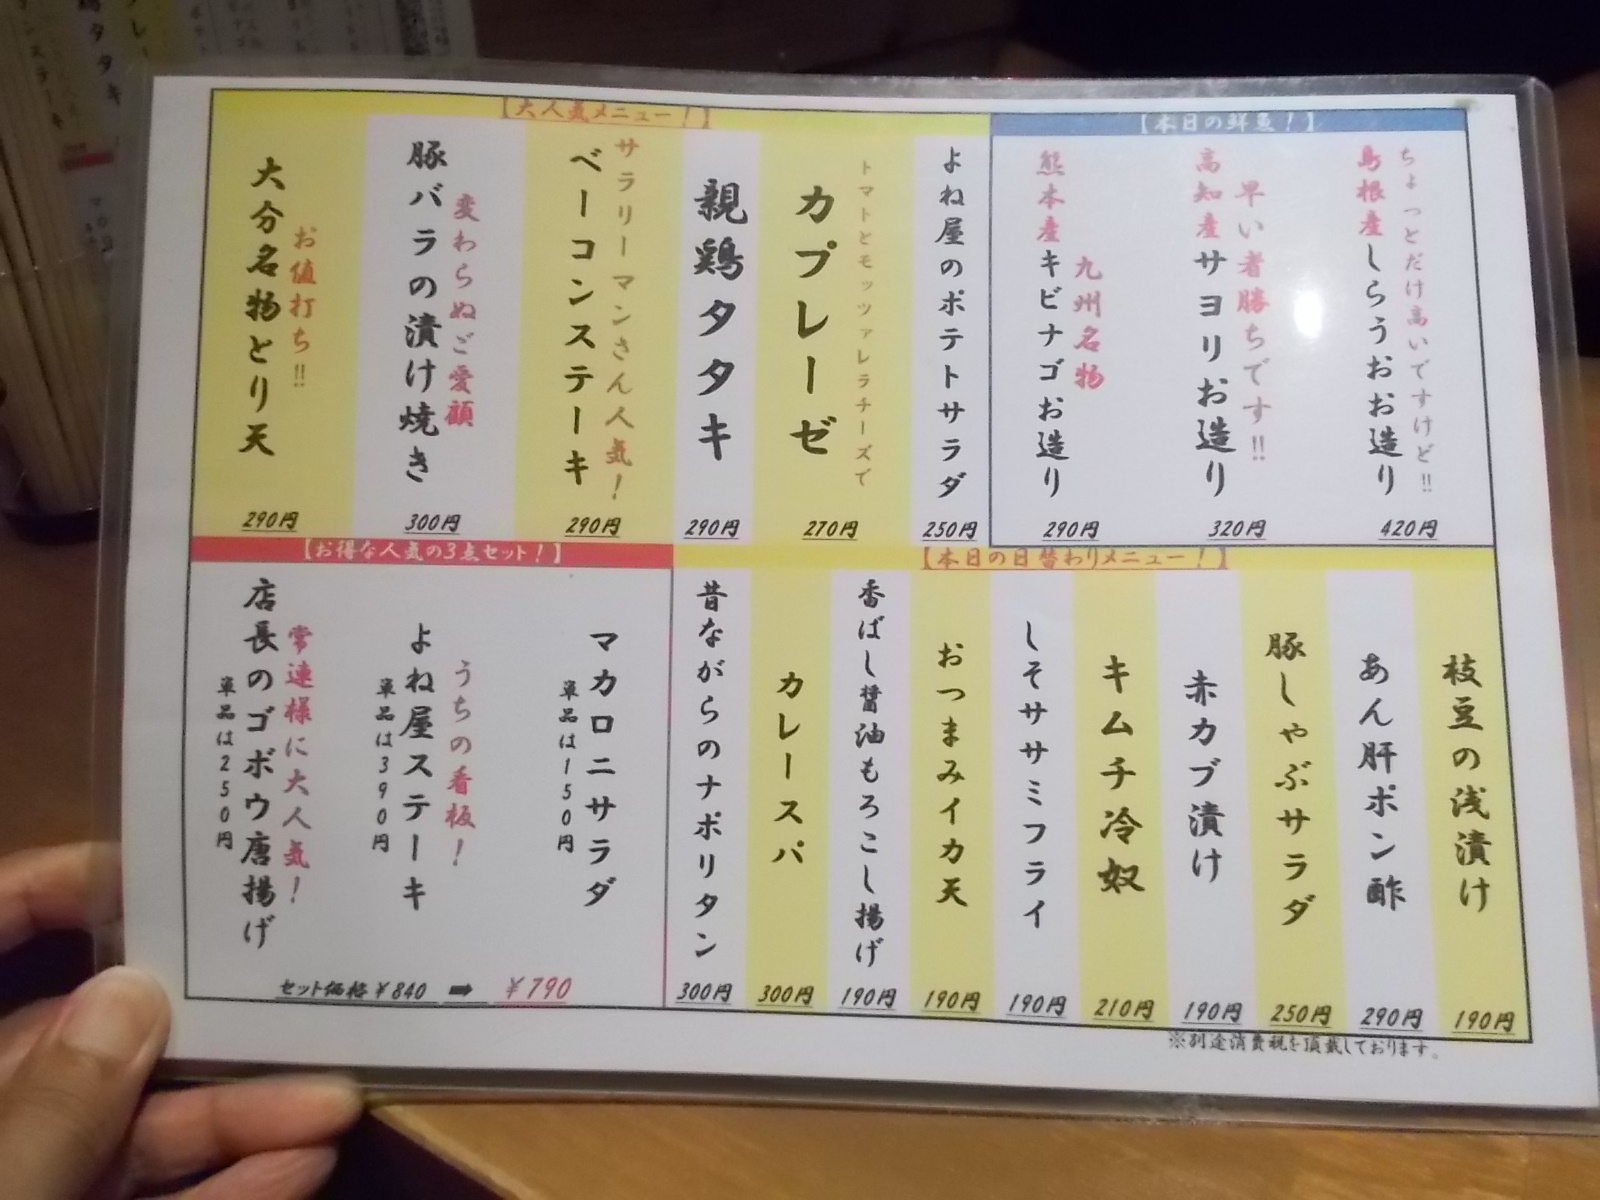 【大人気メニュー！】
よね屋のポテトサラダ
250円
トマトとモッツァレラチーズで
カプレーゼ
270円
親鶏タタキ
290円
サラリーマンさん人気！
ベーコンステーキ
290円
変わらぬご愛顧
豚バラの漬け焼き
300円
お値打ち!!
大分名物とり天
290円
【本日の鮮魚！】
ちょっとだけ高いですけど!!
島根産しらうおお造り
420円
早い者勝ちです!!
高知産サヨリお造り
320円
九州名物
熊本産キビナゴお造り
290円
【お得な人気の3点セット！】
マカロニサラダ
単品は150円
うちの看板！
よね屋ステーキ
単品は390円
常連様に大人気！
店長のゴボウ唐揚げ
単品は250円
セット価格￥840 ➡ ￥790
【本日の日替わりメニュー！】
枝豆の浅漬け
190円
あん肝ポン酢
290円
豚しゃぶサラダ
250円
赤カブ漬け
190円
キムチ冷奴
210円
しそササミフライ
190円
おつまみイカ天
190円
香ばし醤油もろこし揚げ
190円
カレースパ
300円
昔ながらのナポリタン
300円
※別途消費税を頂戴しております。